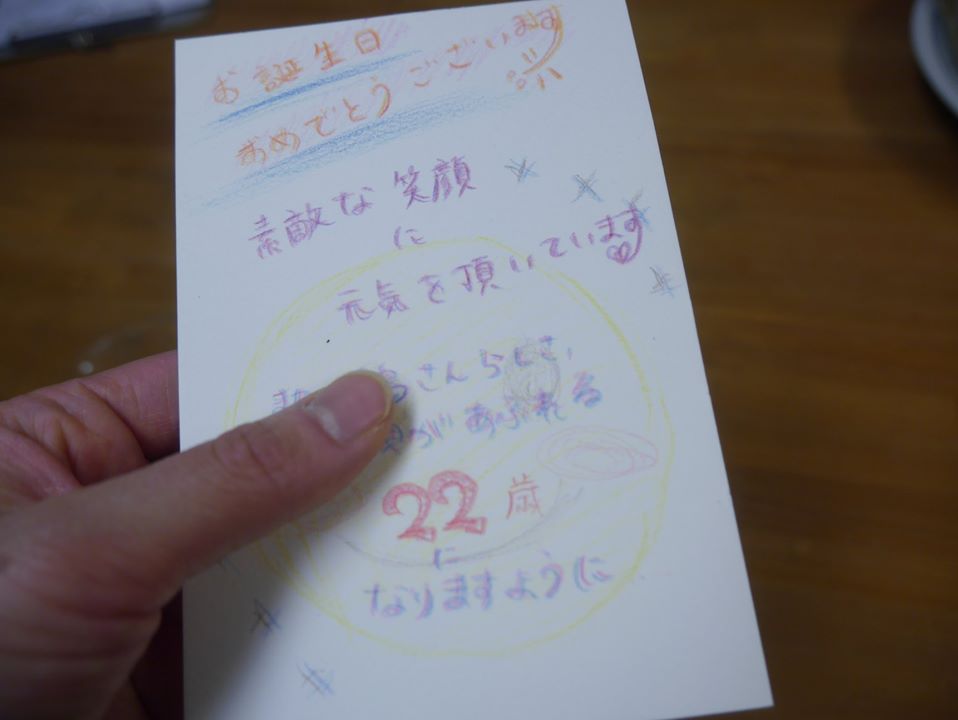 お誕生日
おめでとうございます
素敵な笑顔
に
元気を頂いています
さんらしさ、
があふれる
22歳
に
なりますように